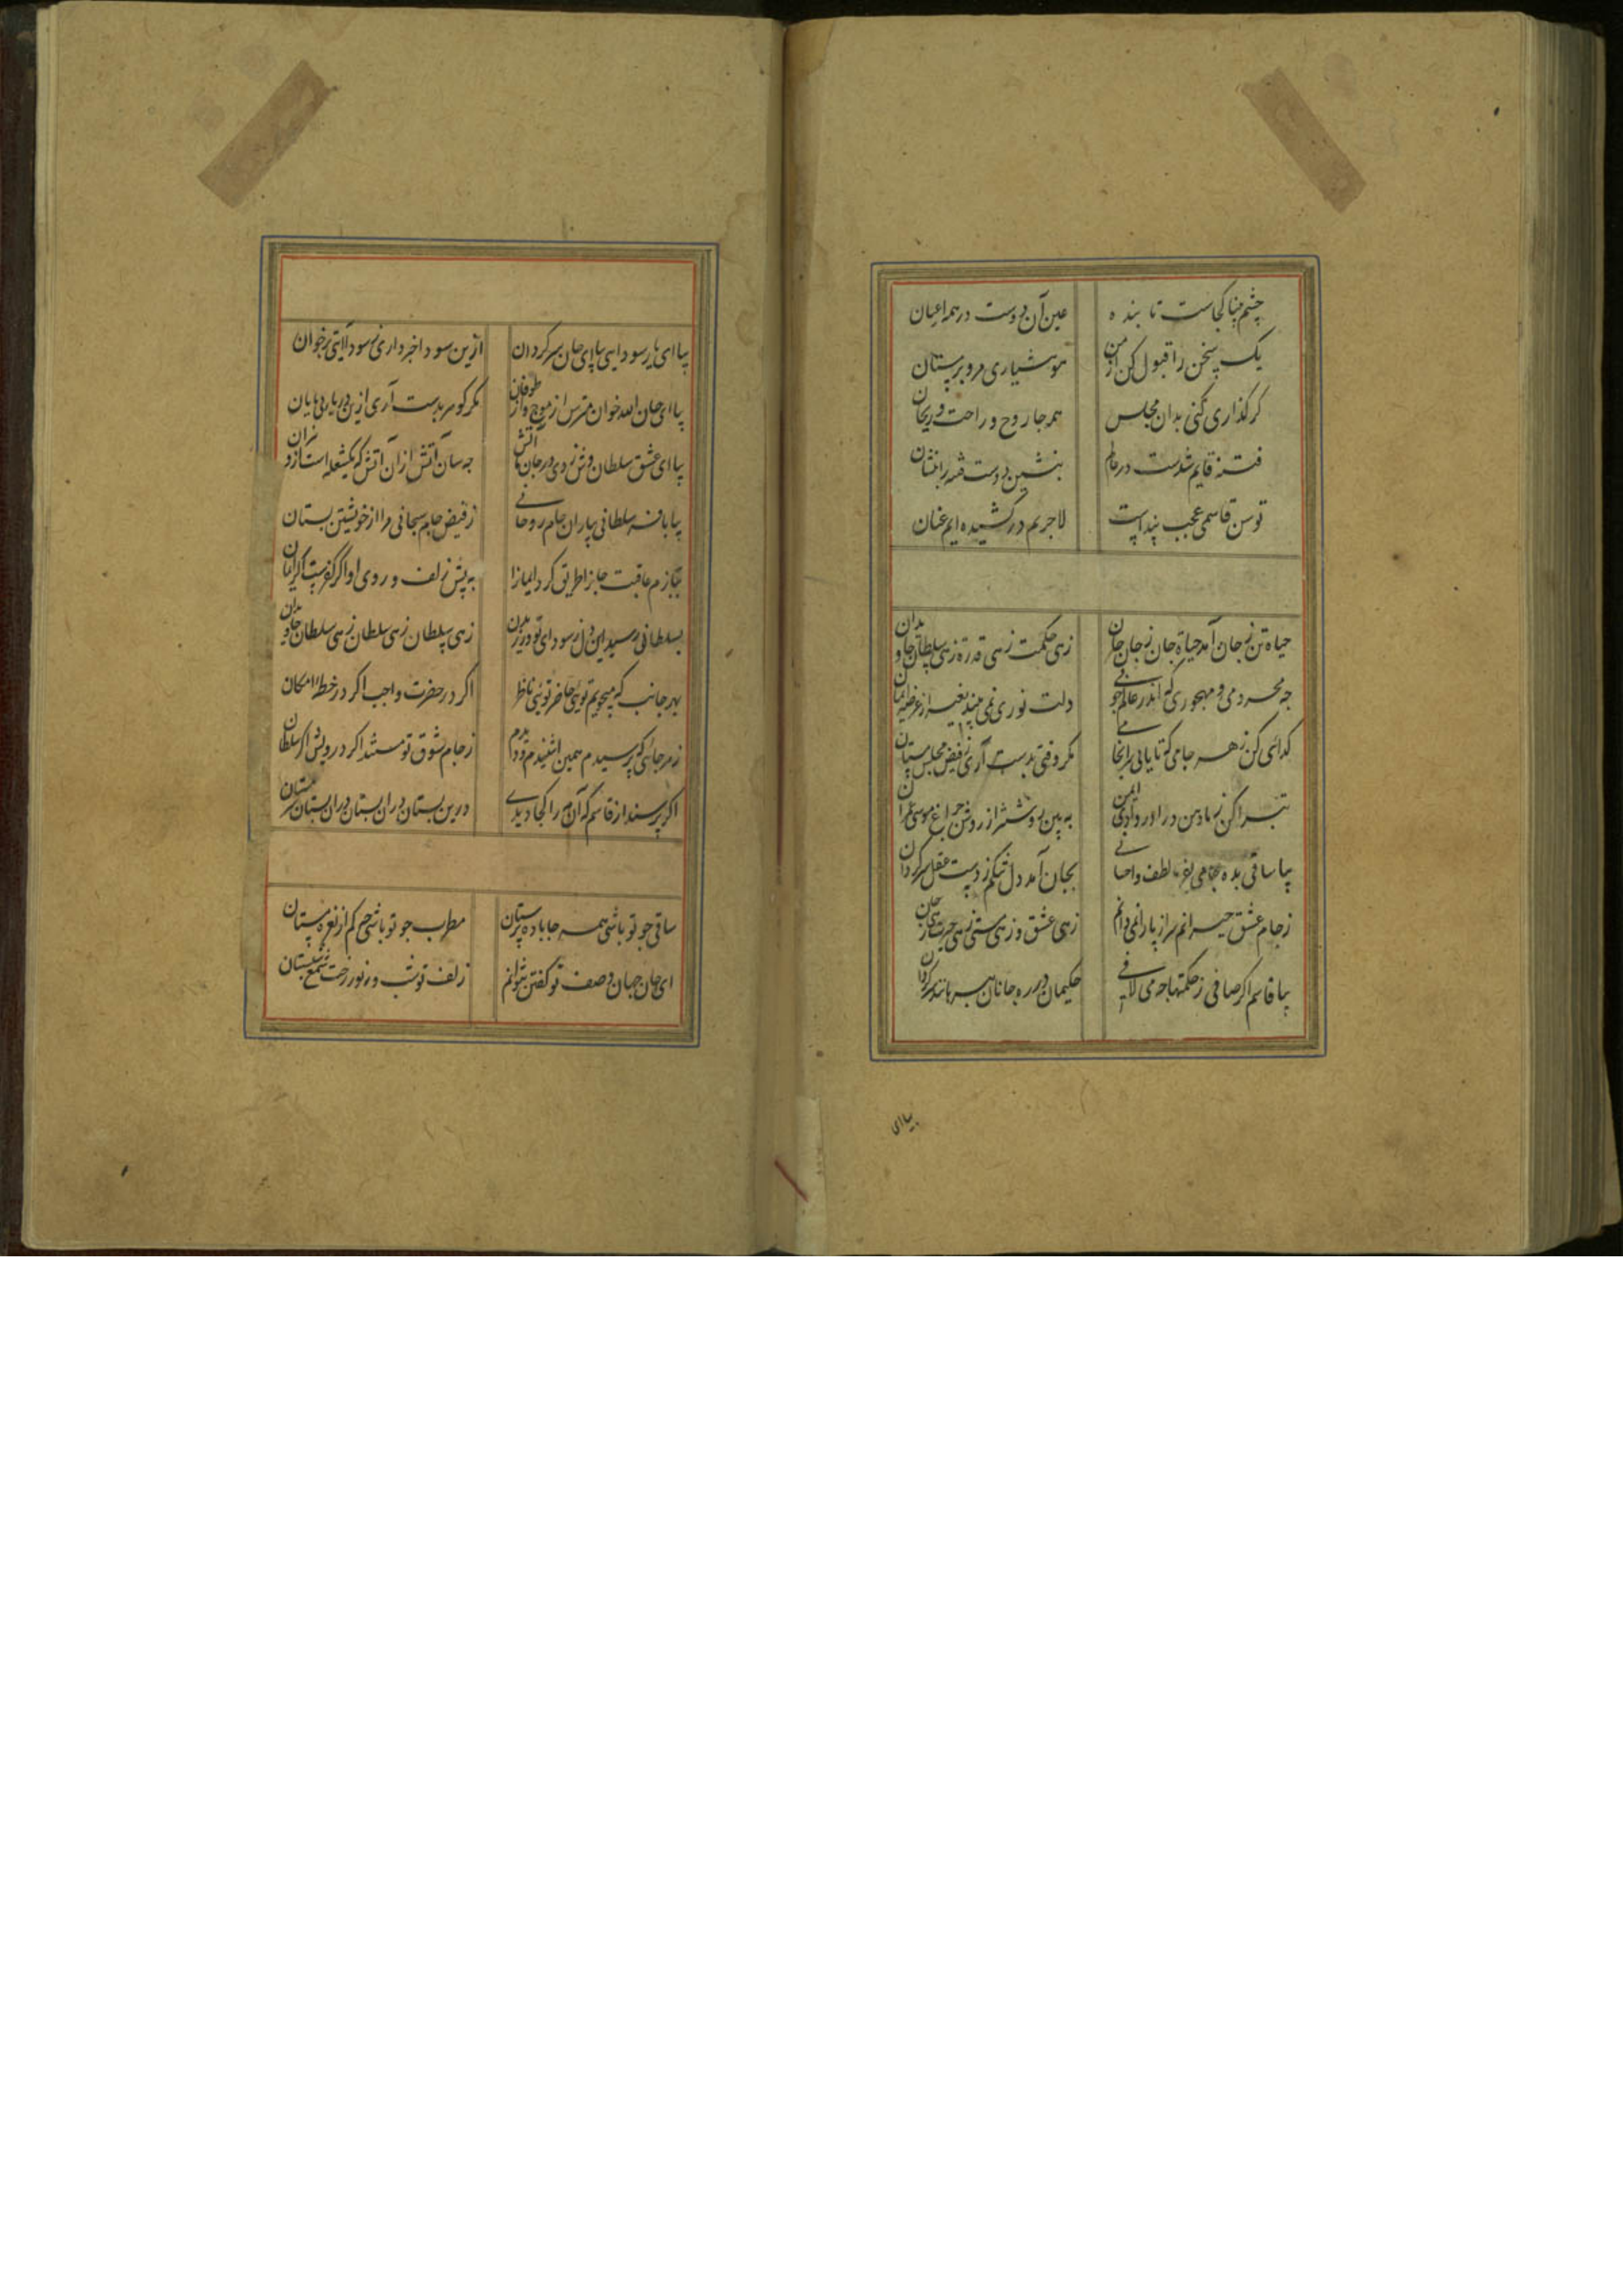 چشم بینا کجاست تا بیند ه عین آن دوست در همه اعیان
یک سخن را قبول کن از من هوشیاری مرو بر مستان
کر کذاری کنی بدان مجلس همه جا روح و راحت و ریحان
فتنه قایم شدست در عالم بنشین دوست فتنه را بنشان
توسن قاسمی عجب تند است لاجرم در کشیده ایم عنان
حیاه تن ز جان آمد حیاة جان ز جان جان زهی حکمت زهی قدرة زهی سلطان جاویدان
چه محرومی و مهجوری که اندر عالم جانی دلت نوری نمی بیند بغیر از عرضه امکان
کدائی کن ز هر جامی که تا یابی سرانجامی مکر وقتی بدست آری ز فیض مجلس مستان
تبرا کن ز ما و من درا در وادی ایمن به بین روشنتر از روشن چراغ موسی عمران
بیا ساقی بده جامی لطف و احسانی بجان آمد دل تنکم ز دست عقل سرکردان
ز جام عشق حیرانم سر از پا را نمی دانم زهی عشق و زهی مستی زهی حیرت
بیا قاسم اکر صافی ز حکمتها چه می لافی حکیمان در ره جانان همه ماندند سرکردان
بیا ای
بیا ای یار سودایی بیا ای جان سرکردان ازین سودا خبر داری ز سودا آیتی برخوان
بیا ای جان الله خوان مترس از موج و از طوفان مکر کوهر بدست آری ازین دریای بی پایان
بیا ای عشق سلطان وش زدی در جان ما آتش چه سان آتش از آن آتش که یکشعله است ازو نیران
بیا با فر سلطانی بیار آن جام روحانی ز فیض جام سبحانی مرا از خویشتن بستان
نیازم عاقبت جانرا طریق کرد به پیش زلف و روی او اکر کفرست اکر ایمان
بسلطانی رسید این دل ز سودای تو در زهی سلطان زهی سلطان زهی سلطان جاویدان
بهر جانب که میجویم توئی حاضر توئی ناظر اکر در حضرت واجب اکر در خطه امکان
ز هر جائی که پرسیدم همین اشنیدم و دیدم ز جام شوق تو مستند اکر درویش اکر سلطان
اکر پرسند از قاسم که آن مه را کجا دیدی درین بستان دران بستان دران بستان
ساقی چو تو باشی همه جا باده پرستان مطرب چو تو باشی چه کم از نعره مستان
ای جان جهان وصف تو کفتن نتوانم زلف تو شب و نور رخت شمع شبستان